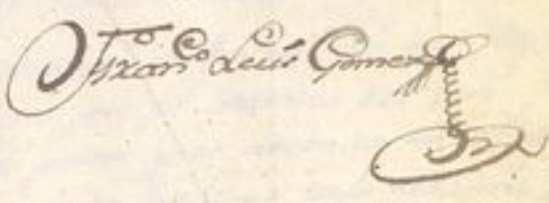 Fran.co Luis Gomez